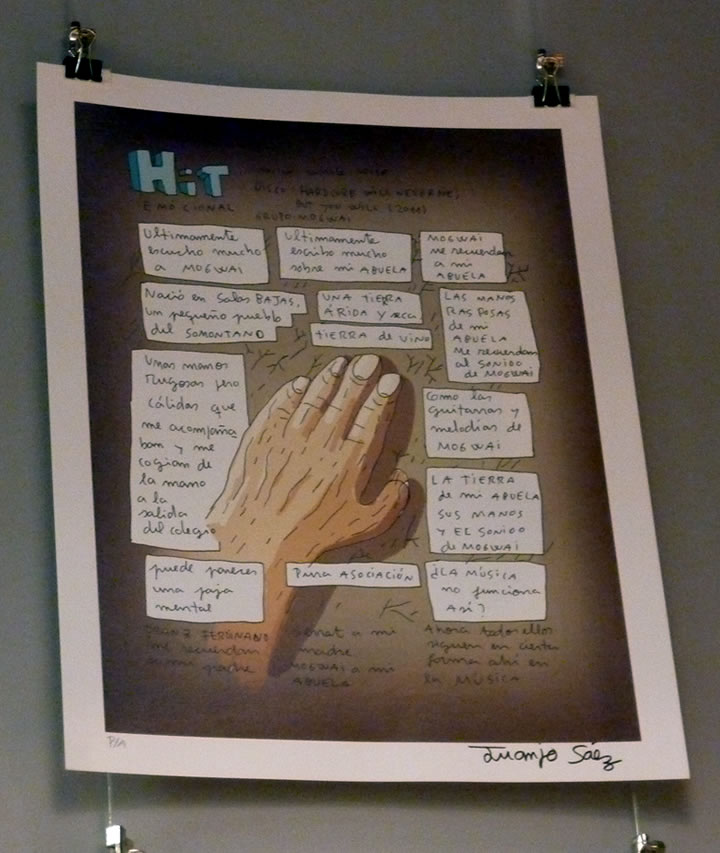 HiT
EMOCIONAL
DISCO: HARDCORE WILL NEVER DIE,
BUT YOU WILL (2011)
GRUPO: MOGWAI
Ultimamente
escucho mucho
a MOGWAI
Ultimamente
escribo mucho
sobre mi ABUELA
MOGWAI
Me recuerdan
a mi
ABUELA
Nació en Salas BAJAS,
un pequeño pueblo
del SOMONTANO
UNA TIERRA
ÁRIDA Y seca
TIERRA de VINO
LAS MANOS
RASPOSAS
de mi
ABUELA
Me recuerdan
al SONIDO
de MOGWAI
Unas manos
rugosas pero
cálidas que
me acompaña
ban y me
cogían de
la mano
a la
salida
del colegio
Como las
guitarras y
melodías de
MOGWAI
LA TIERRA
de mi ABUELA
SUS MANOS
Y EL SONIDO
de MOGWAI
puede parecer
una paja
mental
PURA ASOCIACIÓN
¿LA MÚSICA
no funciona
ASÍ?
FRANZ FERDINAND
me recuerdan
a mi padre
Serrat a mi
madre
MOGWAI a mi
ABUELA
Ahora todos ellos
siguen en cierta
forma ahí en
la MÚSICA
P/A
Juanjo Sáez